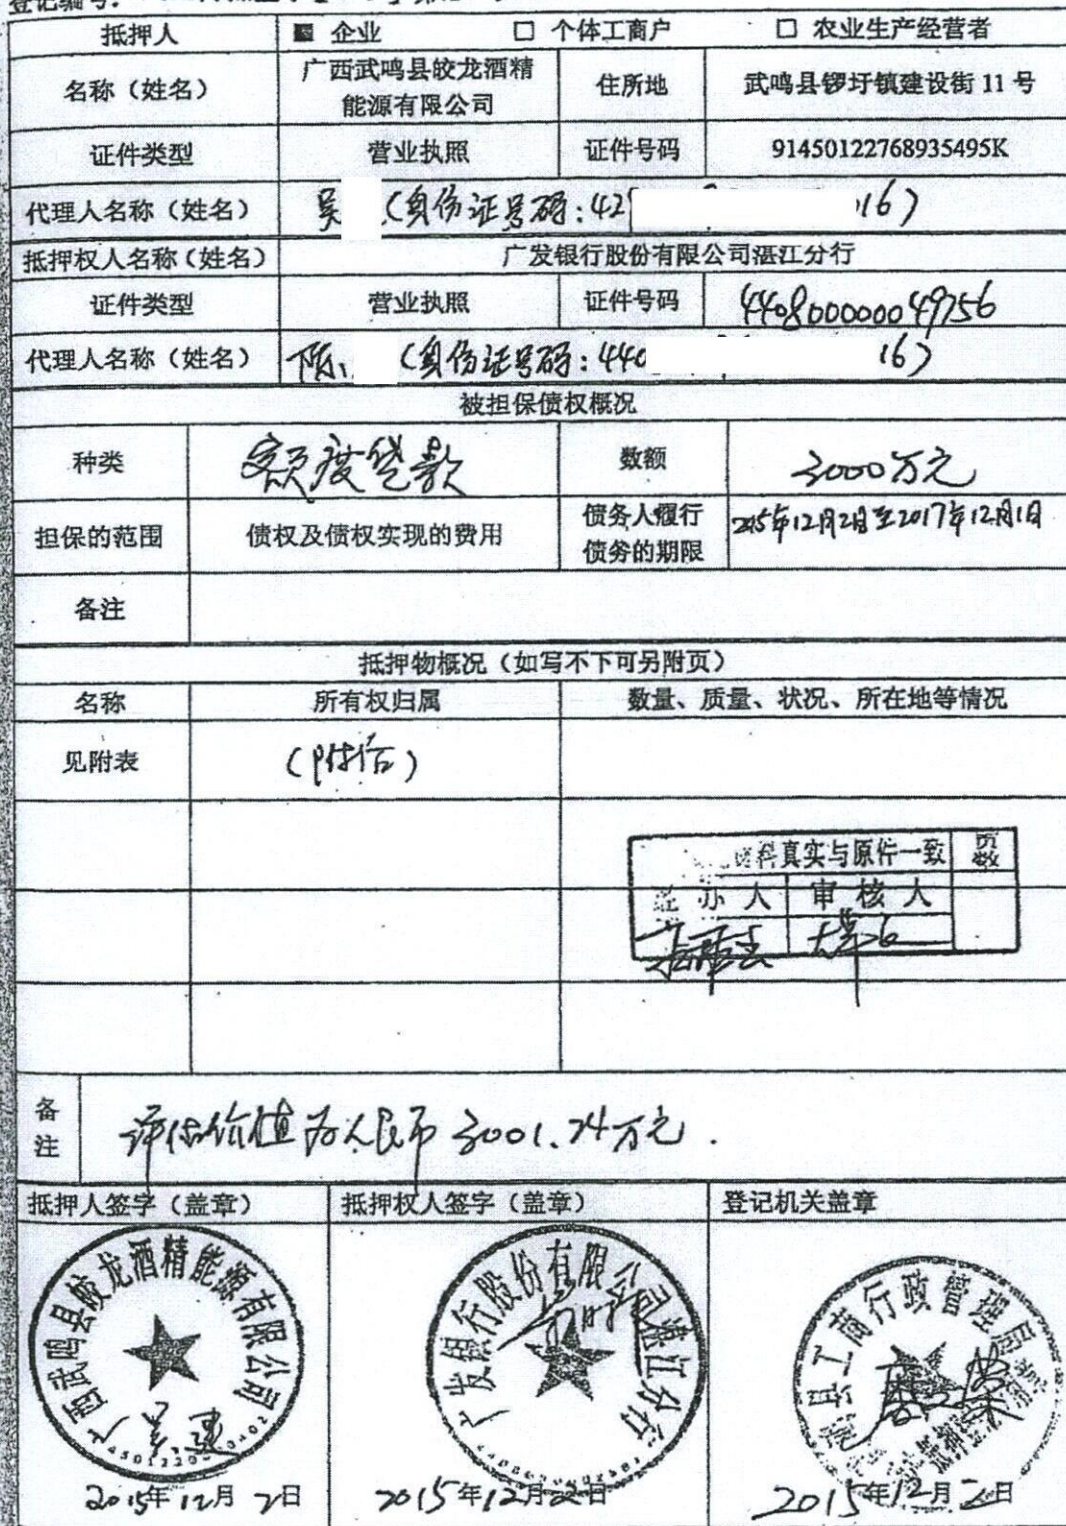 登记编号:
抵押人 ■ 企业 □ 个体工商户 □ 农业生产经营者
名称（姓名） 广西武鸣县皎龙酒精能源有限公司 住所地 武鸣县锣圩镇建设街 11 号
证件类型 营业执照 证件号码 91450122768935495K
代理人名称（姓名） 吴 （身份证号码：42 16）
抵押权人名称（姓名） 广发银行股份有限公司湛江分行
证件类型 营业执照 证件号码 440800000049756
代理人名称（姓名） 陈 （身份证号码：440 16）
被担保债权概况
种类 额度贷款 数额 3000万元
担保的范围 债权及债权实现的费用 债务人履行债务的期限 2015年12月2日至2017年12月1日
备注
抵押物概况（如写不下可另附页）
名称 所有权归属 数量、质量、状况、所在地等情况
见附表
材料真实与原件一致 页数
经办人 审核人
备注 评估价值为人民币3001.74万元.
抵押人签字（盖章） 抵押权人签字（盖章） 登记机关盖章
广西武鸣县皎龙酒精能源有限公司
广发银行股份有限公司湛江分行
县工商行政管理局
2015年12月2日 2015年12月2日 2015年12月2日